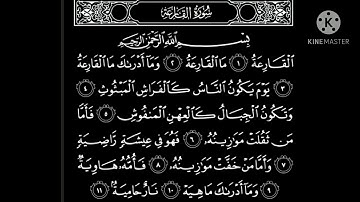 سُورَةُ القَارِعَةِ
KINEMASTER
بِسْمِ اللَّهِ الرَّحْمَٰنِ الرَّحِيمِ
الْقَارِعَةُ ١ مَا الْقَارِعَةُ ٢ وَمَا أَدْرَاكَ مَا الْقَارِعَةُ
٣ يَوْمَ يَكُونُ النَّاسُ كَالْفَرَاشِ الْمَبْثُوثِ ٤
وَتَكُونُ الْجِبَالُ كَالْعِهْنِ الْمَنفُوشِ ٥ فَأَمَّا
مَن ثَقُلَتْ مَوَازِينُهُ ٦ فَهُوَ فِي عِيشَةٍ رَّاضِيَةٍ
٧ وَأَمَّا مَنْ خَفَّتْ مَوَازِينُهُ ٨ فَأُمُّهُ هَاوِيَةٌ
٩ وَمَا أَدْرَاكَ مَا هِيَهْ ١٠ نَارٌ حَامِيَةٌ ١١